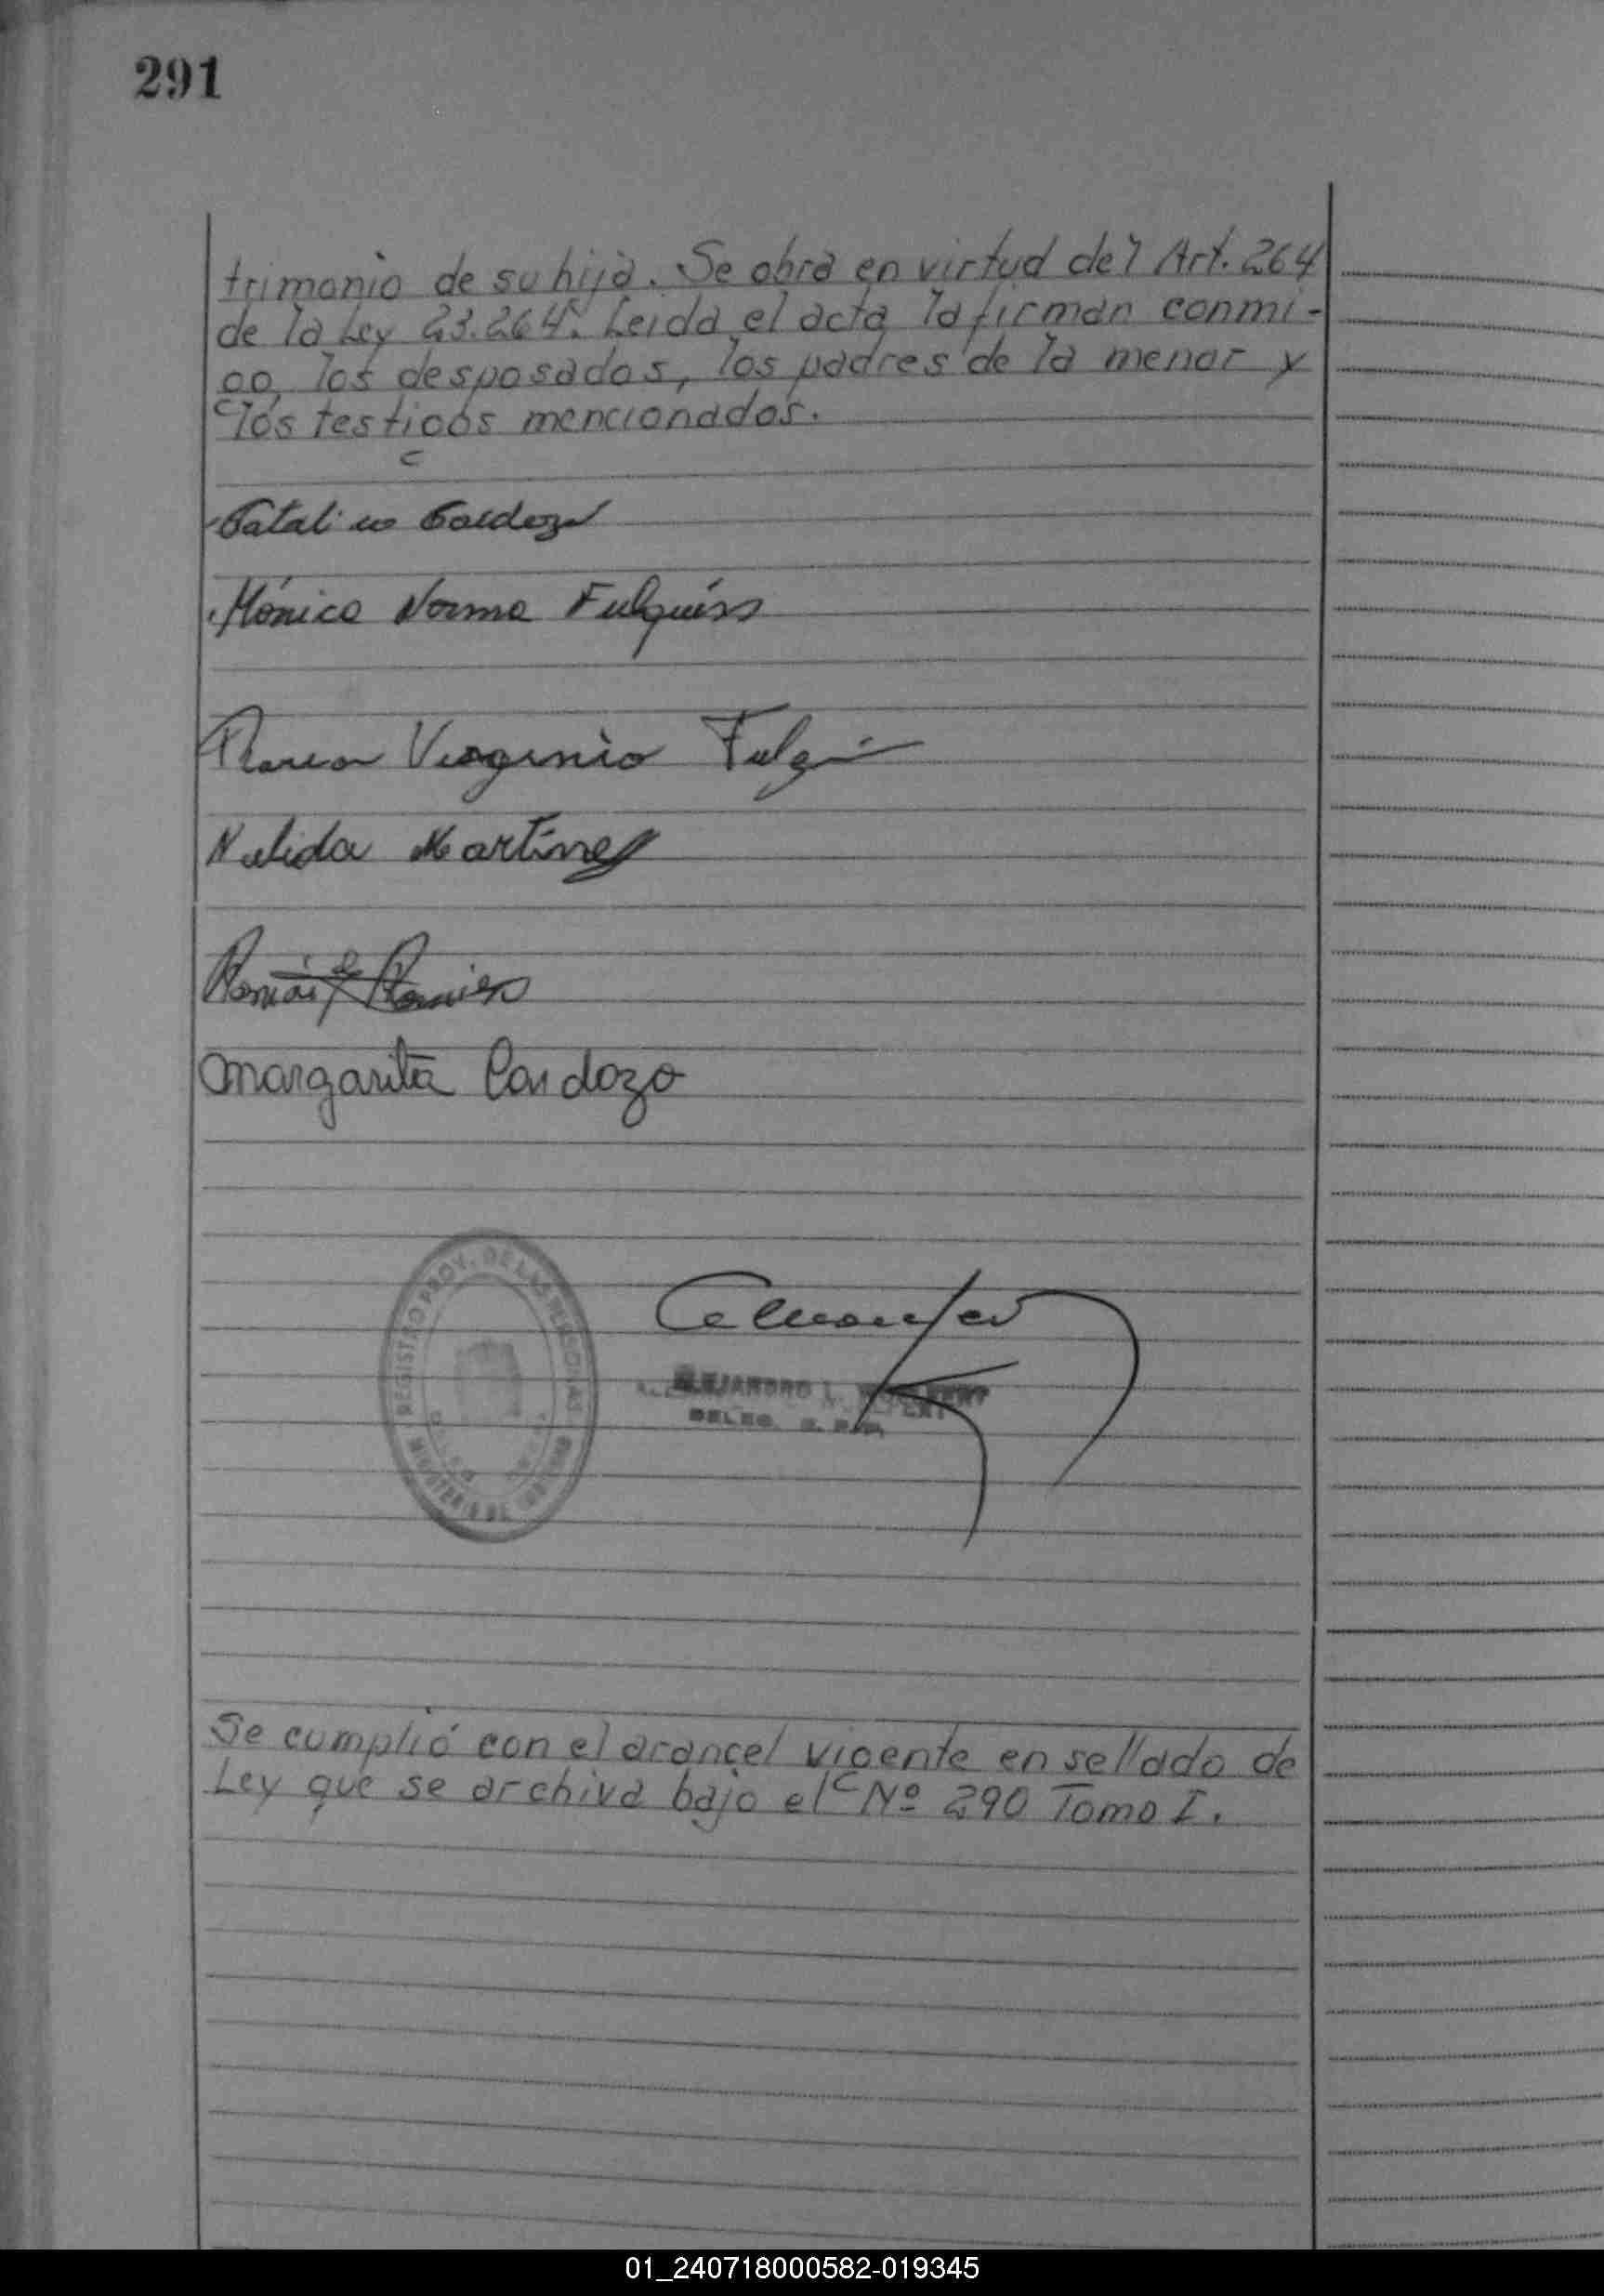 291
trimonio de su hija. Se obra en virtud del Art. 264
de la Ley 23.264. Leida el acta la firman conmi-
go, los desposados, los padres de la menor y
los testigos mencionados.
Catalino Cardozo
Mónica Norma Fulquiss
Virginio
Nelida Martinez
Margarita Cardozo
REGISTRO PROV. DE LAS PERSONAS
MINISTERIO DE GOBIERNO
ALEJANDRO L.
DELEG. R. P. P.
Se cumplió con el arancel vigente en sellado de
Ley que se archiva bajo el Nº 290 Tomo I.
01_240718000582-019345